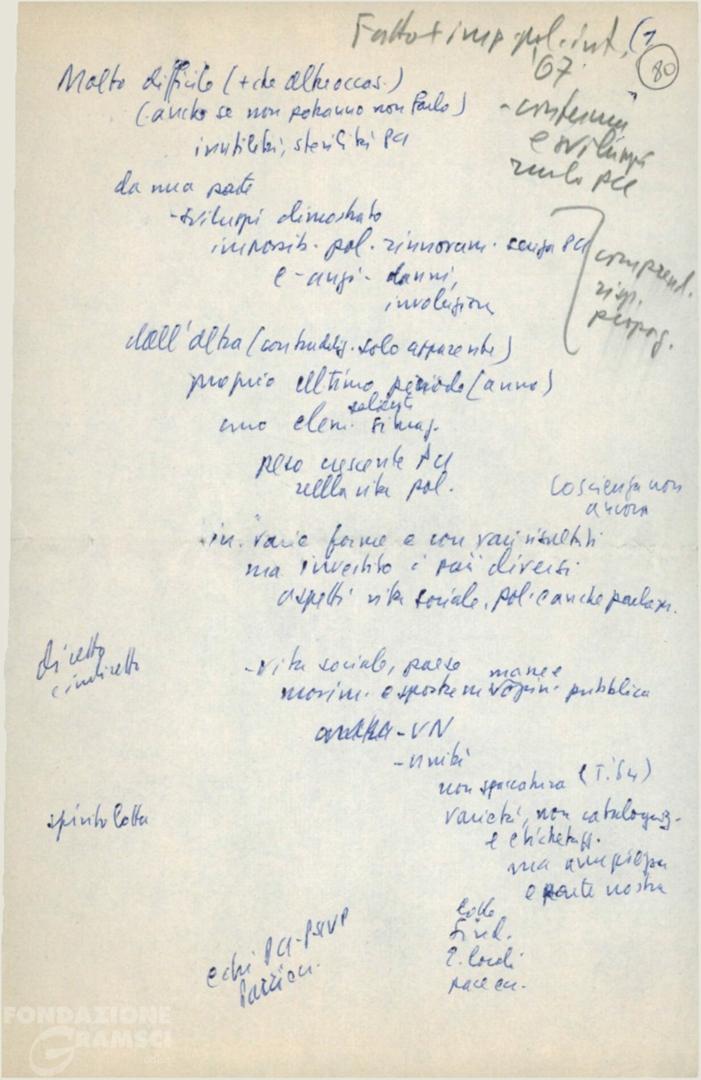 Fatto + imp. pol. int. (1
'67
80
- conferma
e sviluppi
ruolo PCI
Molto difficile (+ che altre occas.)
(anche se non potranno non farlo)
inutilità, sterilità PCI
da una parte
- sviluppi dimostrato
impossib. pol. rinnovam. senza PCI
e - anzi - danni,
involuzione
comprend.
risp.
propag.
dall'altra (contraddiz. solo apparente)
proprio ultimo periodo (anno)
uno elem. salienti
peso crescente PCI
nella vita pol.
coscienza non
ancora
in varie forme e con vari risultati
ma investito i più diversi
aspetti vita sociale, pol. e anche parlam.
diretto
e indiretto
- vita sociale, paese
movim. e spostam. opin. pubblica
- VN
- unità
non spaccatura (T. '64)
spirito lotta
varietà, non catalogaz.
e etichettaz.
ma ampiezza
e parte nostra
lotte
Sind.
E. locali
pace ecc.
echi PCI-PSIUP
Parri ecc.
FONDAZIONE
GRAMSCI